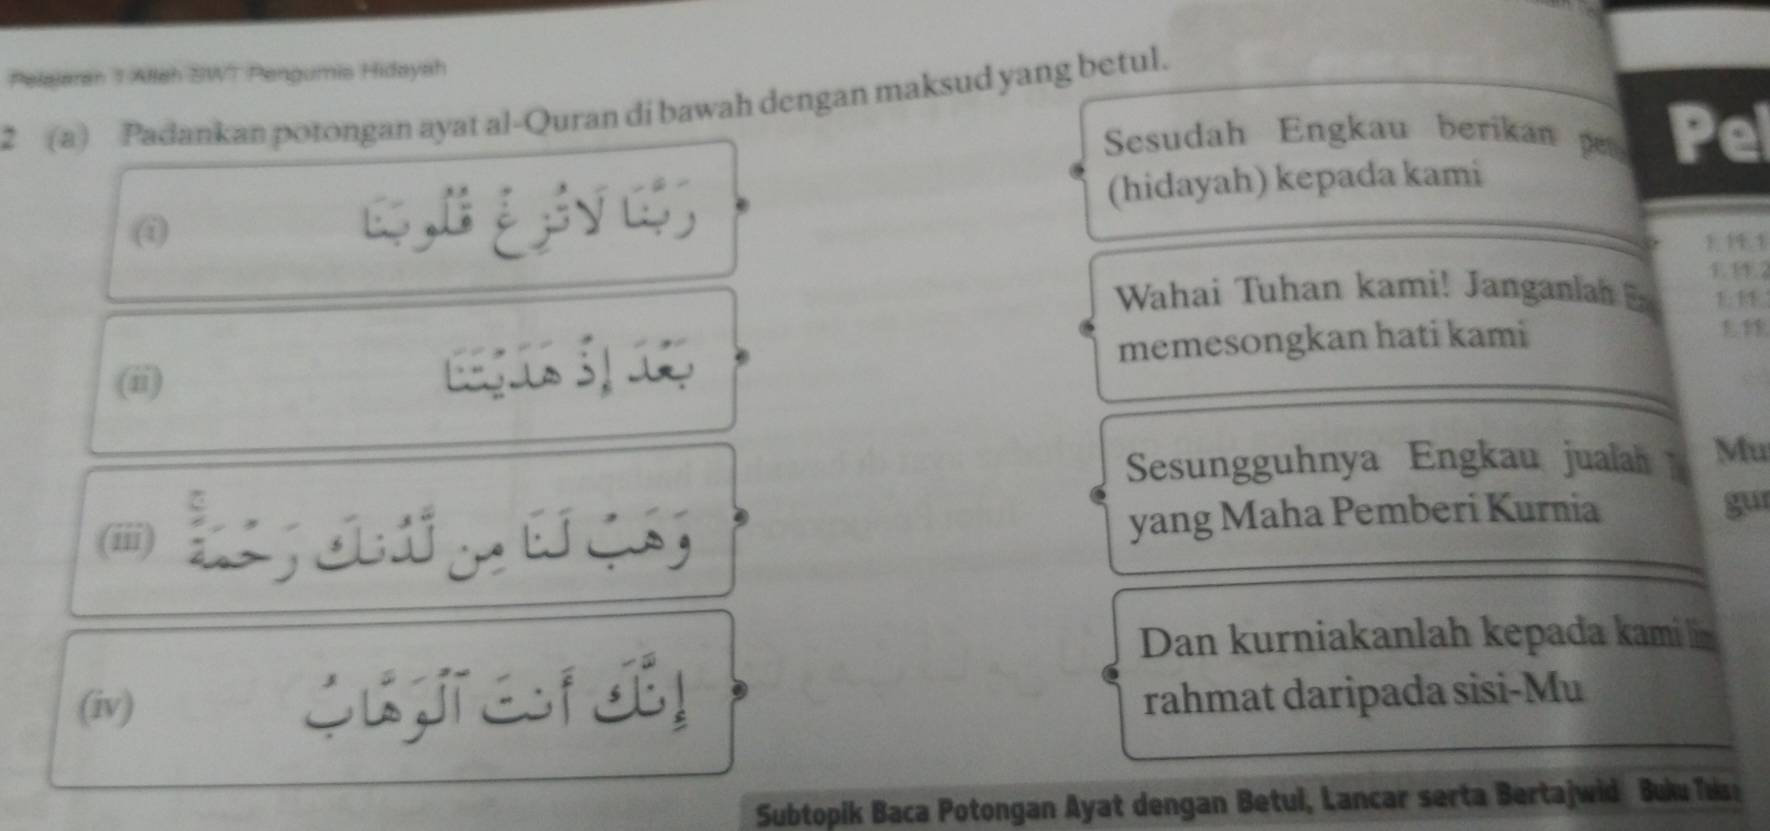 Pelajaran 1 Allah SWT Pengurnia Hidayah
2 (a) Padankan potongan ayat al-Quran di bawah dengan maksud yang betul.
(i) رَبَّنَا لَا تُزِغْ قُلُوبَنَا
(ii) بَعْدَ إِذْ هَدَيْتَنَا
(iii) وَهَبْ لَنَا مِن لَّدُنكَ رَحْمَةً ۚ
(iv) إِنَّكَ أَنتَ ٱلْوَهَّابُ
Sesudah Engkau berikan
(hidayah) kepada kami
Wahai Tuhan kami! Janganlah
memesongkan hati kami
Sesungguhnya Engkau jualah
yang Maha Pemberi Kurnia
Dan kurniakanlah kepada kami
rahmat daripada sisi-Mu
Subtopik Baca Potongan Ayat dengan Betul, Lancar serta Bertajwid Buku
Pel
Mu